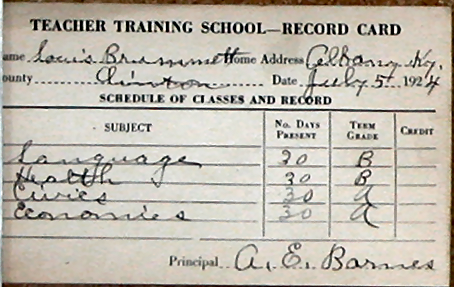 TEACHER TRAINING SCHOOL—RECORD CARD
ame Louis Brummett ome Address Albany Ky.
ounty Clinton Date July 5th 1924
SCHEDULE OF CLASSES AND RECORD
SUBJECT No. Days Present Term Grade Credit
Language 30 B
Health 30 B
Civics 30 A
Economics 30 A
Principal A. E. Barnes